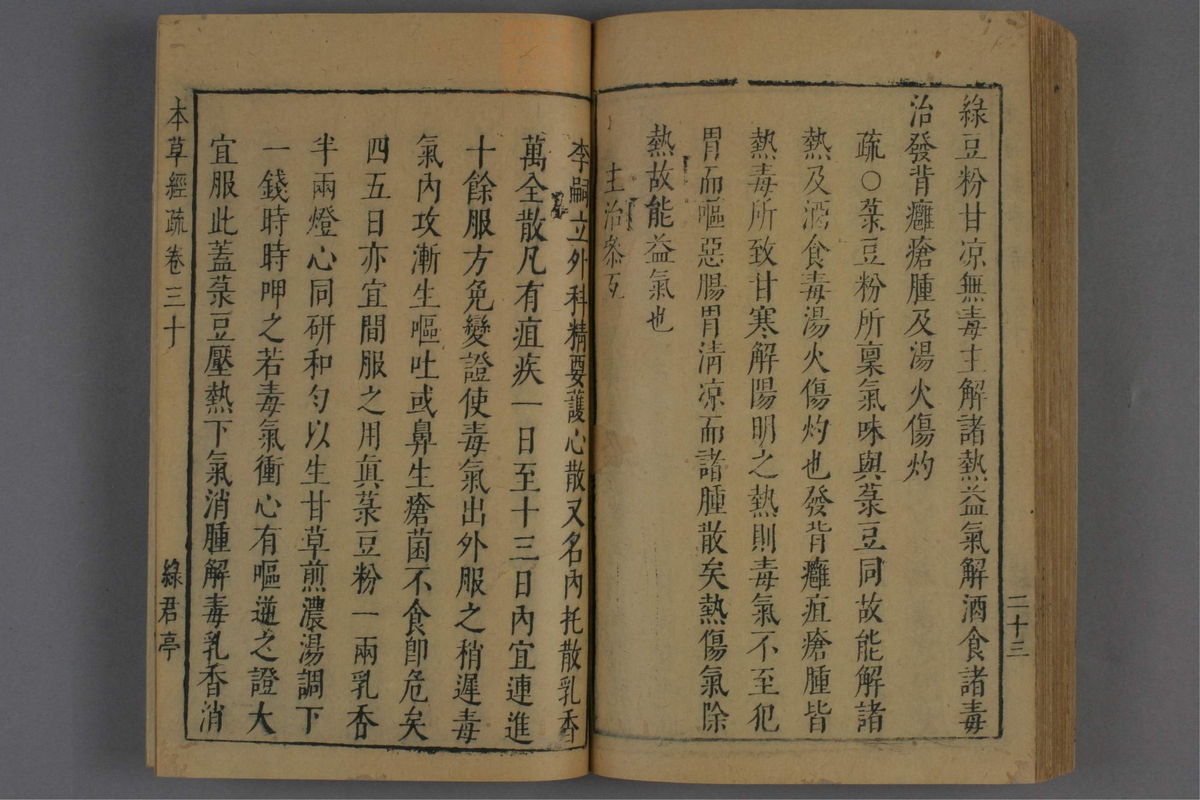 綠豆粉甘凉無毒主解諸熱益氣解酒食諸毒
治發背癰瘡腫及湯火傷灼
疏○菉豆粉所稟氣味與菉豆同故能解諸
熱及酒食毒湯火傷灼也發背癰疽瘡腫皆
熱毒所致甘寒解陽明之熱則毒氣不至犯
胃而嘔惡腸胃淸凉而諸腫散矣熱傷氣除
熱故能益氣也
主治參互
二十三
李嗣立外科精要護心散又名內托散乳香
萬全散凡有疽疾一日至十三日內宜連進
十餘服方免變證使毒氣出外服之稍遲毒
氣內攻漸生嘔吐或鼻生瘡菌不食卽危矣
四五日亦宜間服之用眞菉豆粉一兩乳香
半兩燈心同研和勻以生甘草煎濃湯調下
一錢時時呷之若毒氣衝心有嘔逆之證大
宜服此蓋菉豆壓熱下氣消腫解毒乳香消
本草經疏卷三十
綠君亭